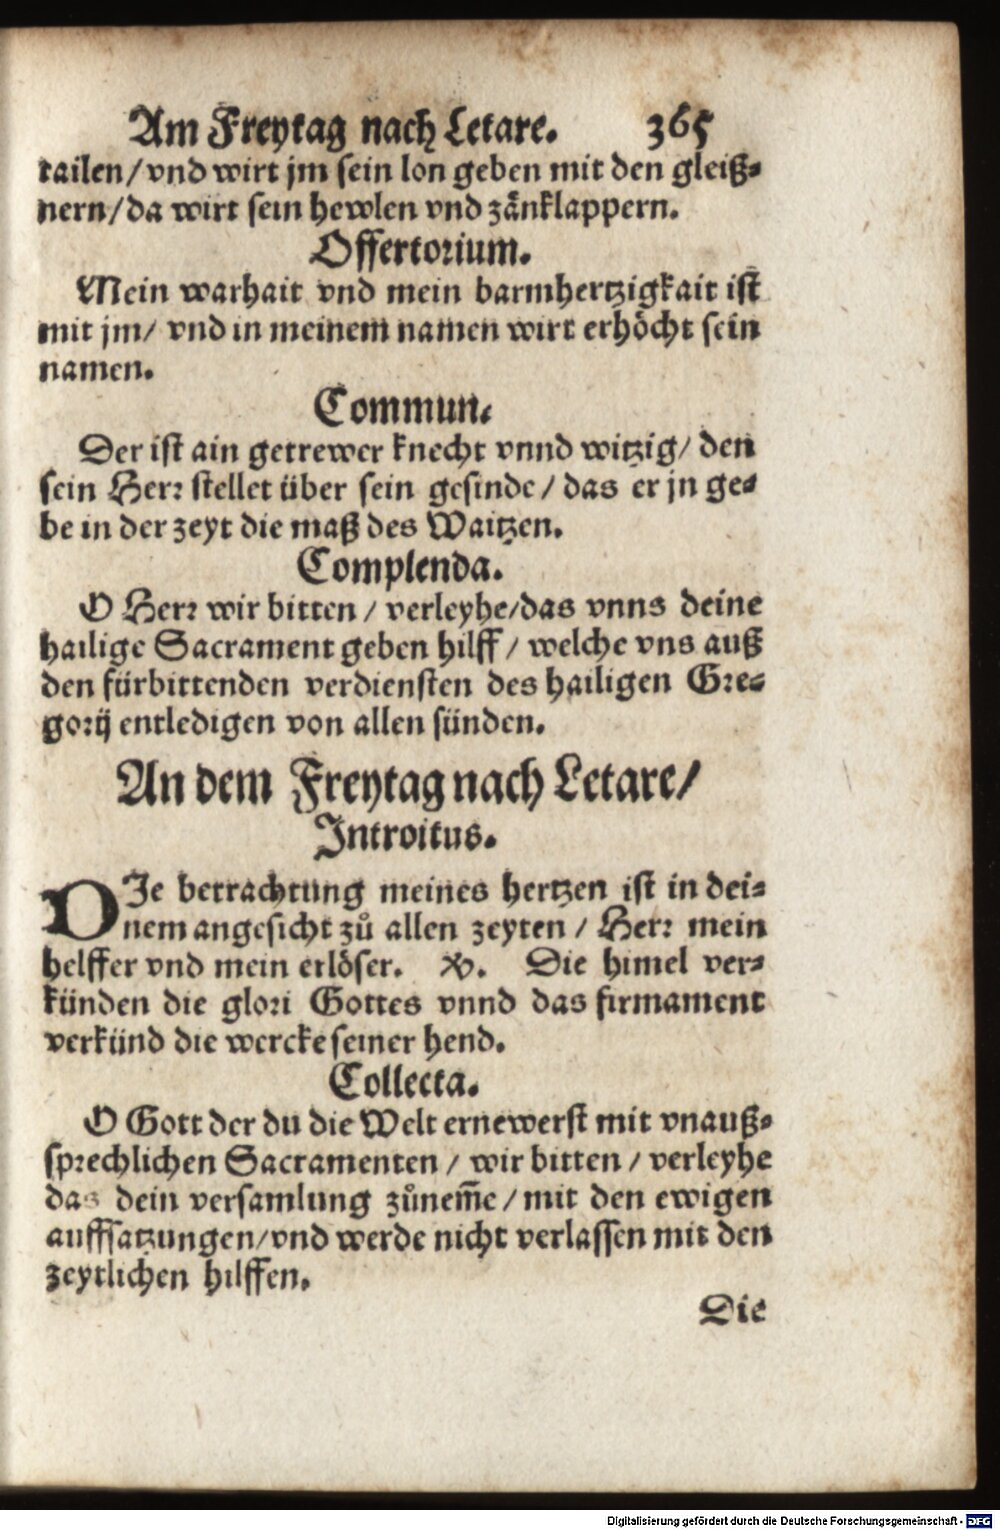 Am Freytag nach Letare. 365
tailen / vnd wirt jm sein lon geben mit den gleiß-
nern / da wirt sein hewlen vnd zänklappern.
Offertorium.
Mein warhait vnd mein barmhertzigkait ist
mit jm / vnd in meinem namen wirt erhöcht sein
namen.
Commun.
Der ist ain getrewer knecht vnnd witzig / den
sein Herr stellet über sein gesinde / das er jn ge-
be in der zeyt die maß des Waitzen.
Complenda.
O Herr wir bitten / verleyhe / das vnns deine
hailige Sacrament geben hilff / welche vns auß
den fürbittenden verdiensten des hailigen Gre-
gorij entledigen von allen sünden.
An dem Freytag nach Letare /
Introitus.
DIe betrachtung meines hertzen ist in dei-
nem angesicht zů allen zeyten / Herr mein
helffer vnd mein erlöser. ꝟ. Die himel ver-
künden die glori Gottes vnnd das firmament
verkünd die wercke seiner hend.
Collecta.
O Gott der du die Welt ernewerst mit vnauß-
sprechlichen Sacramenten / wir bitten / verleyhe
das dein versamlung zůnem̅e / mit den ewigen
auffsatzungen / vnd werde nicht verlassen mit den
zeytlichen hilffen.
Die
Digitalisierung gefördert durch die Deutsche Forschungsgemeinschaft - DFG